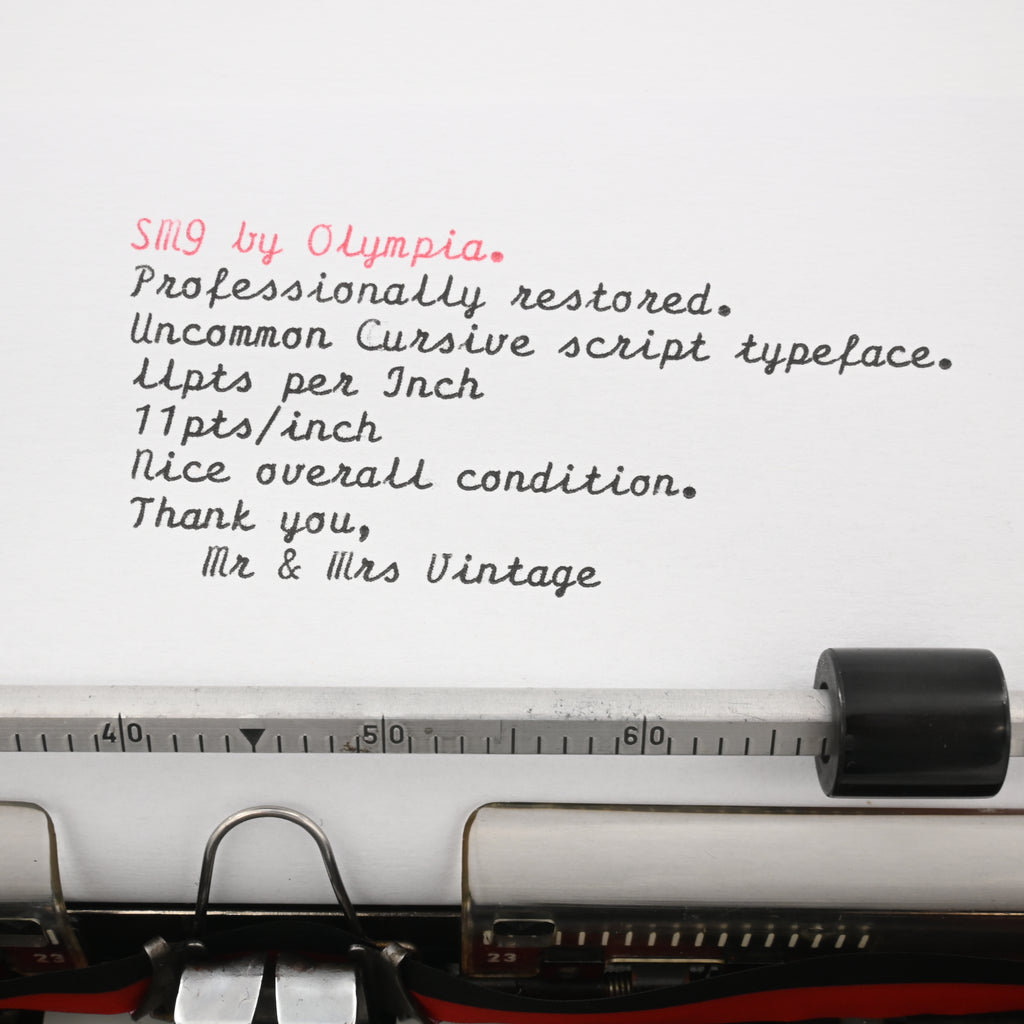 SM9 by Olympia.
Professionally restored.
Uncommon Cursive script typeface.
llpts per Inch
11pts/inch
Nice overall condition.
Thank you,
Mr & Mrs Vintage
40 50 60
23 23